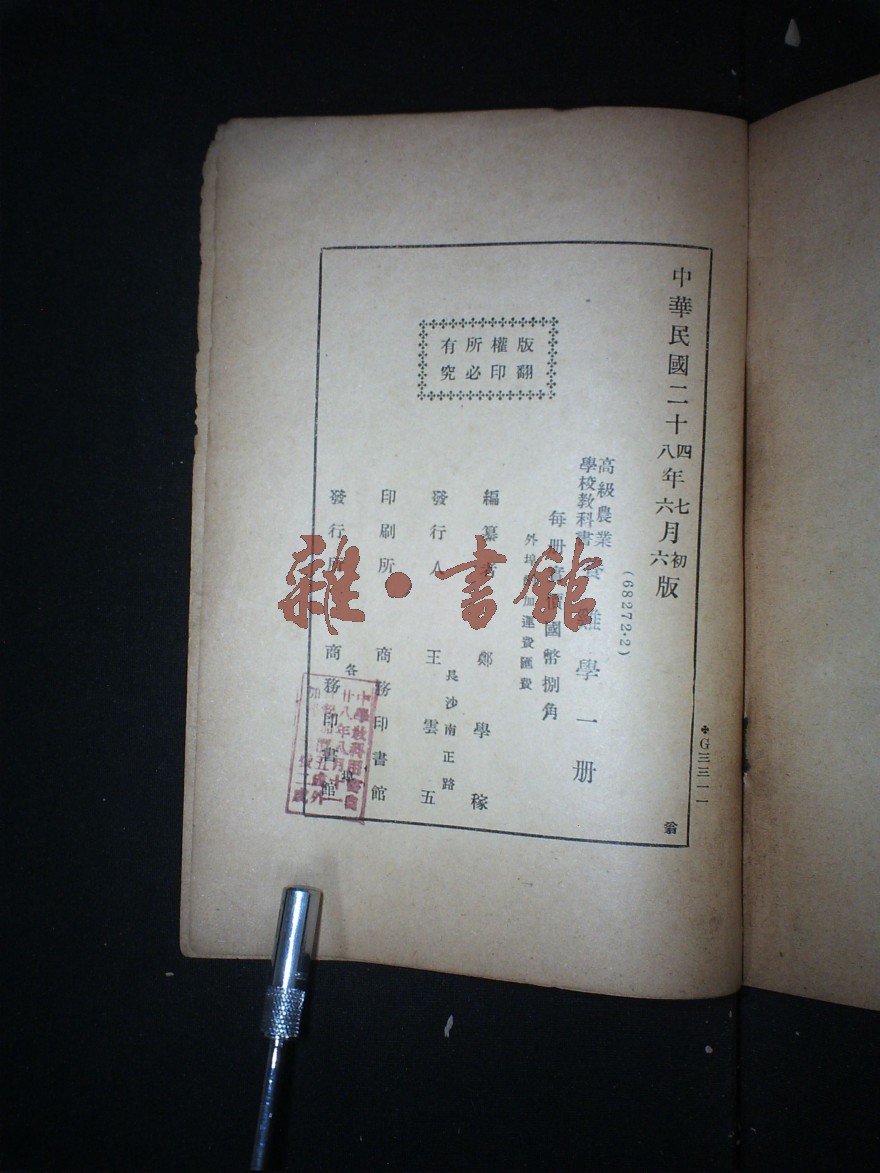 中華民國二十四年七月初版
八 六 六
(68272·2)
高級農業
學校教科書
養雞學一册
每册實價國幣捌角
外埠酌加運費匯費
編纂者 鄭學稼
發行人 王雲五
長沙南正路
印刷所 商務印書館
各埠
發行所 商務印書館
版權所有
翻印必究
✣G三三一一
翁
雜·書館